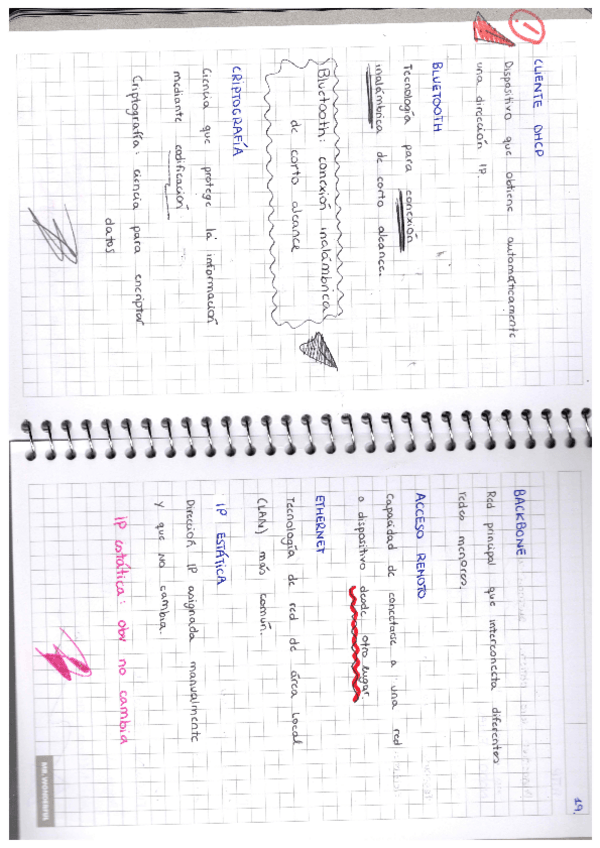 1
CLIENTE DHCP
Dispositivo que obtiene automáticamente
una dirección IP.
BLUETOOTH
Tecnología para conexión
inalámbrica de corto alcance.
Bluetooth: conexión inalámbrica
de corto alcance
CRIPTOGRAFÍA
Ciencia que protege la información
mediante codificación
Criptografía: ciencia para encriptar
datos
19.
BACKBONE
Red principal que interconecta diferentes
redes menores.
ACCESO REMOTO
Capacidad de conectarse a una red
o dispositivo desde otro lugar.
ETHERNET
Tecnología de red de área local
(LAN) más común.
IP ESTÁTICA
Dirección IP asignada manualmente
y que no cambia.
IP estática: obv no cambia
MR. WONDERFUL